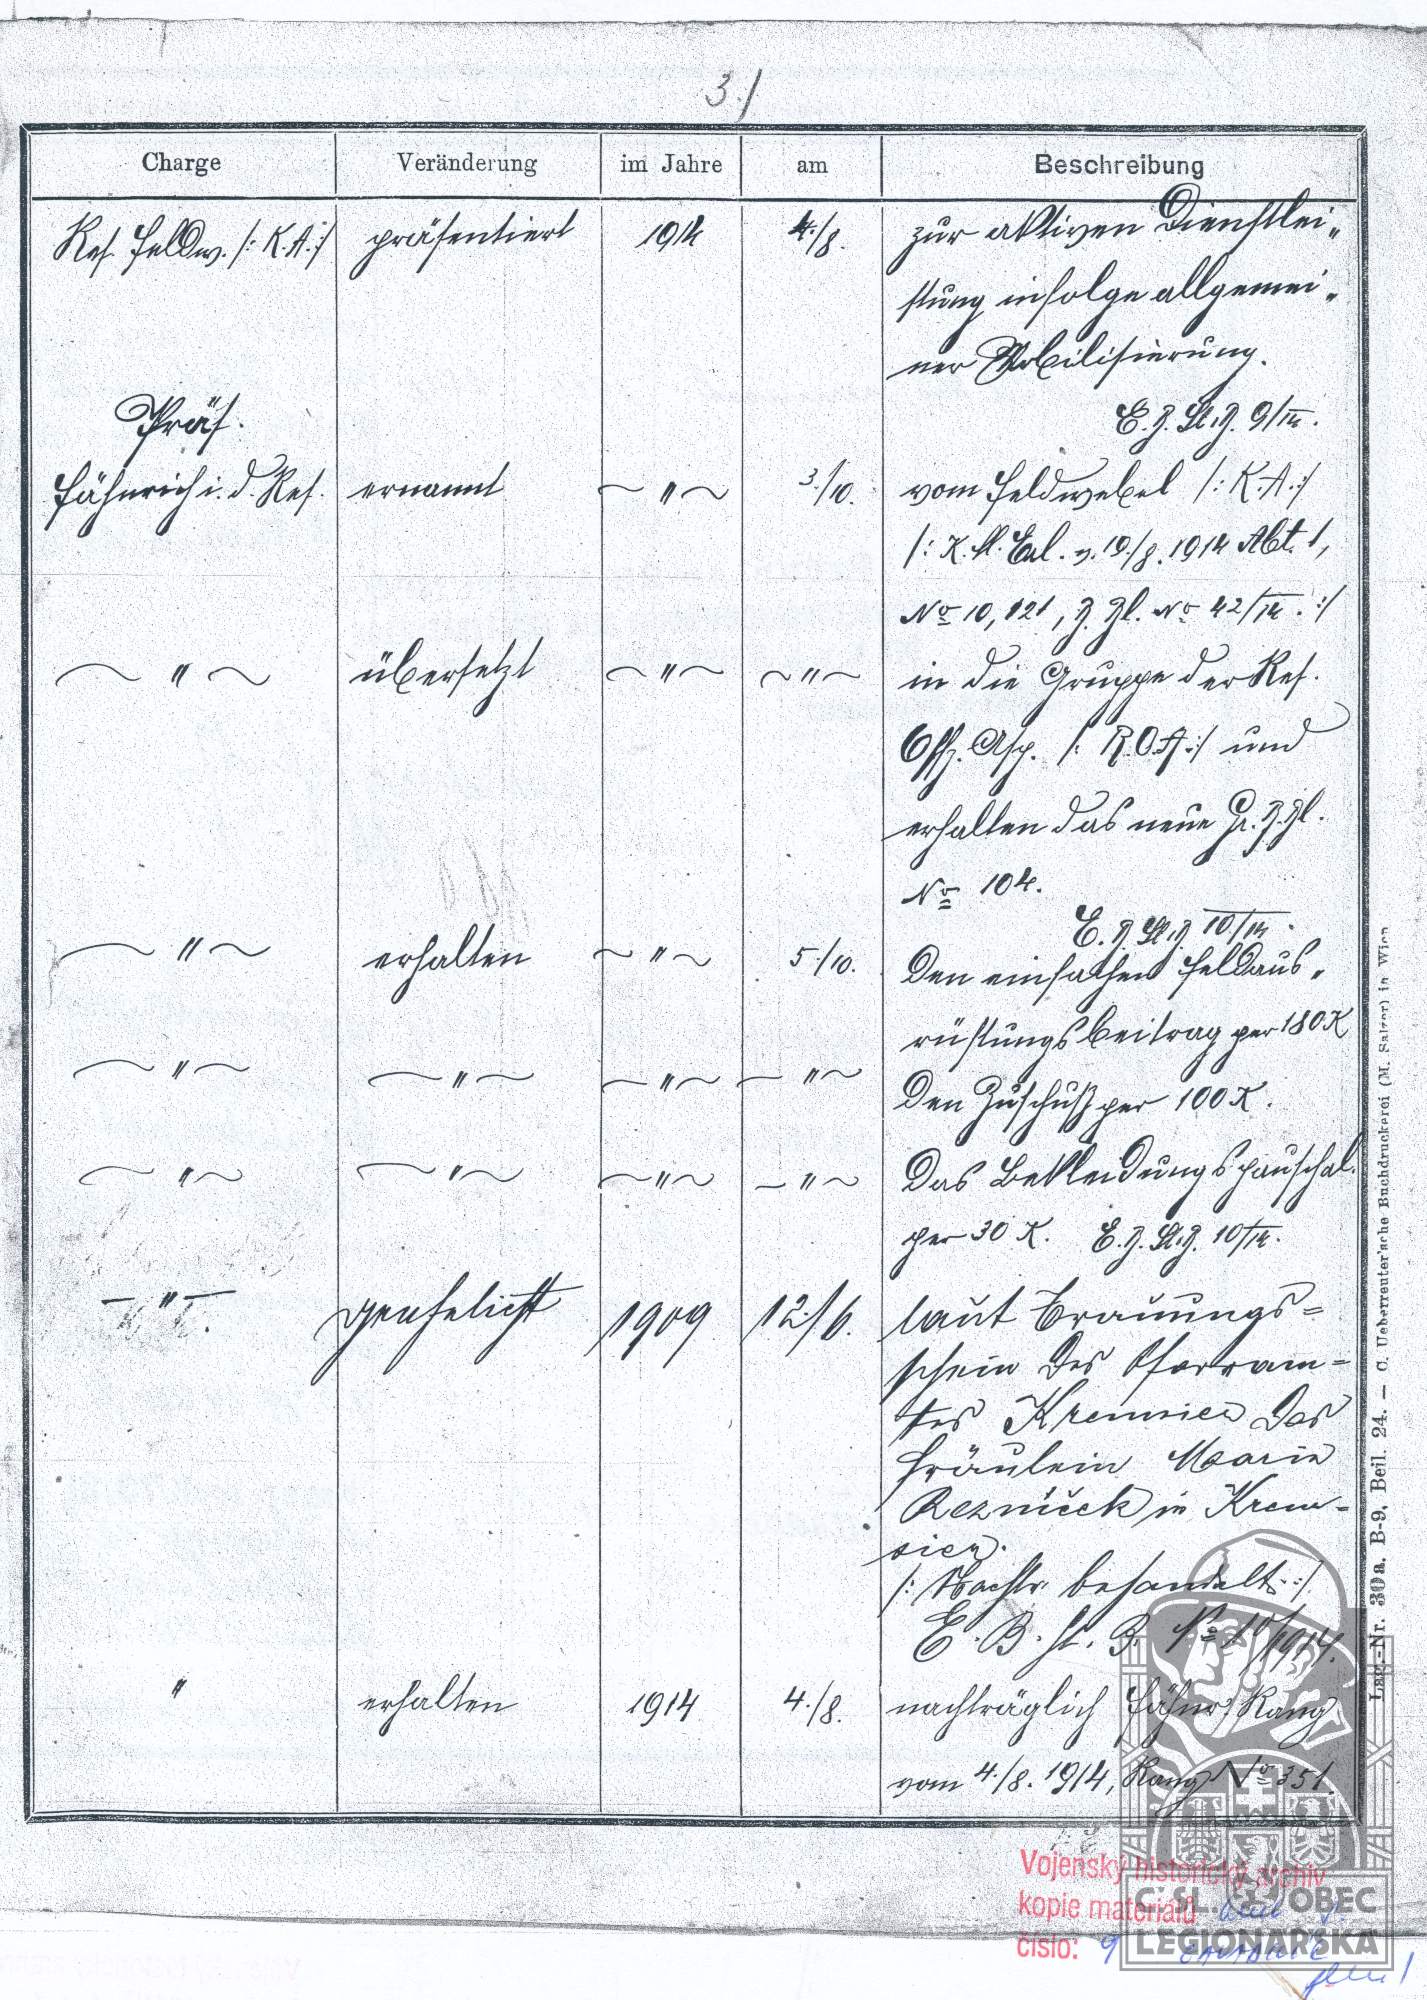 3./
Charge Veränderung im Jahre am Beschreibung
Res. Feldw. /: K.A. :/ präsentiert 1914 4./8. zur aktiven Dienstlei„
stung infolge allgemei„
ner Mobilisierung.
Präs. E.B.St.B. 9/14.
Fähnrich i. d. Res. ernannt ~ " ~ 3./10. vom Feldwebel /: K.A. :/
/: K.M. Erl. v. 19./8. 1914 Abt. 1,
No 10,121, B. Bl. No 42/14. :/
~ " ~ übersetzt ~ " ~ ~ " ~ in die Gruppe der Res.
Offz. Asp. /: R.O.A. :/ und
erhalten das neue Gr. B. Bl.
No 104.
E.B.St.B. 10/14.
~ " ~ erhalten ~ " ~ 5./10. den einfachen Feldaus„
rüstungsbeitrag per 180 K
~ " ~ ~ " ~ ~ " ~ ~ " ~ den Zuschuß per 100 K.
~ " ~ ~ " ~ ~ " ~ ~ " ~ das Bekleidungspauschal.
per 30 K. E.B.St.B. 10/14.
— " — verehelicht 1909 12./6. laut Trauungs=
schein des Pfarram=
tes Kremsier das
Fräulein Marie
Rezníček in Krem=
sier.
/: Nachtr. behandelt. :/
E. B. St. B. No 10/1914.
" erhalten 1914 4./8. nachträglich Fähnr. Rang
vom 4./8. 1914, Rang No 351.
Lag.-Nr. 30 a. B-9, Beil. 24. — C. Ueberreuter'sche Buchdruckerei (M. Salzer) in Wien
Vojenský historický archiv
kopie materiálů
číslo: 9
ČS. OBEC
LEGIONÁŘSKÁ